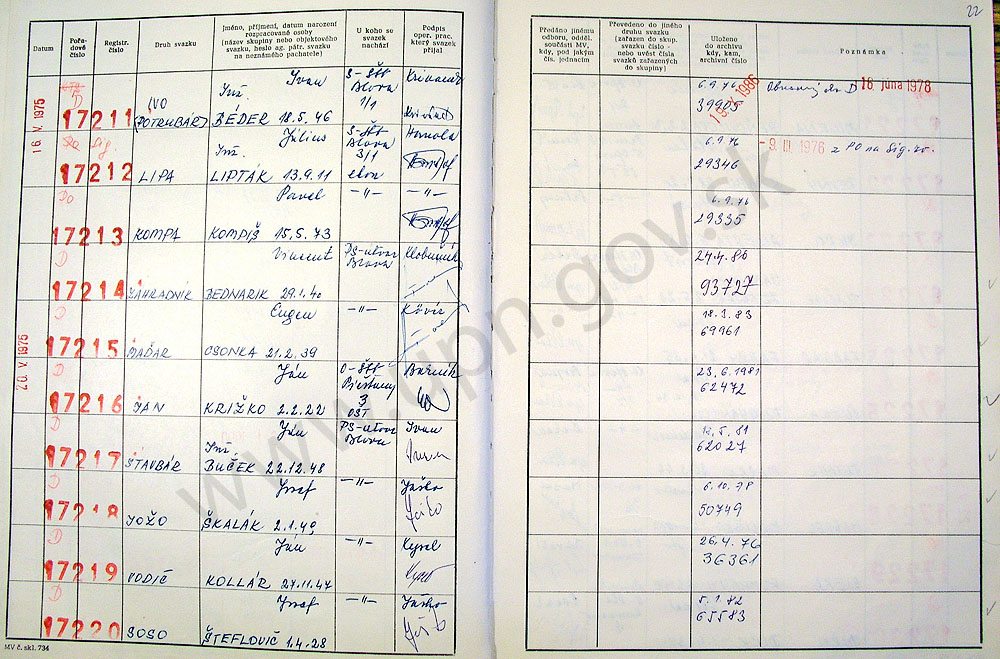 Datum
Pořa-
dové
číslo
Registr.
číslo
Druh svazku
Jméno, příjmení, datum narození
rozpracované osoby
(název skupiny nebo objektového
svazku, heslo ag. pátr. svazku
na neznámého pachatele)
U koho se
svazek
nachází
Podpis
oper. prac.
který svazek
přijal
Předáno jinému
odboru, odděl.
součásti MV,
kdy, pod jakým
čís. jednacím
Převedeno do jiného
druhu svazku
(zařazeno do skup.
svazku číslo -
nebo uvést čísla
svazků zařazených
do skupiny)
Uloženo
do archivu
kdy, kam,
archivní číslo
Poznámka
22
16. V. 1975
D
17211
(VO
POTRUBÁR)
Ivan
Inž.
BÉDER 18.5.46
S-ŠtB
Blava
1/1
6.9.76
39905
16. júna 1978
17212
LIPA
Július
Inž.
LIPTÁK 13.9.11
S-ŠtB
Blava
3/1
ekon
Homola
6.9.76
29346
- 9. III. 1976 z PO na Sig. zv.
Do
17213
KOMPA
Pavel
KOMPIŠ 15.5.73
-"-
-"-
6.9.76
29335
D
17214
ZÁHRADNÍK
Vincent
BEDNARIK 29.1.40
PS-útvar
Blava
24.4.86
93727
20. V. 1975
17215
MAĎAR
Eugen
OSONKA 21.2.39
-"-
18.3.83
69961
D
17216
JAN
Ján
KRIŽKO 2.2.22
O-ŠtB
Piešťany
3
OST
23.6.1981
62472
D
17217
STAVBÁR
Ján
Inž.
BUČEK 22.12.48
PS-útvar
Blava
Ivan
12.5.81
62027
17218
JOŽO
Jozef
ŠKALÁK 2.1.49
-"-
Jaško
6.10.78
50749
D
17219
VODIČ
Ján
KOLLÁR 27.11.47
-"-
Kysel
26.4.76
36361
D
17220
SOSO
Jozef
ŠTEFLOVIČ 1.4.28
-"-
Jaško
5.1.82
65583
MV č. skl. 734
www.upn.gov.sk